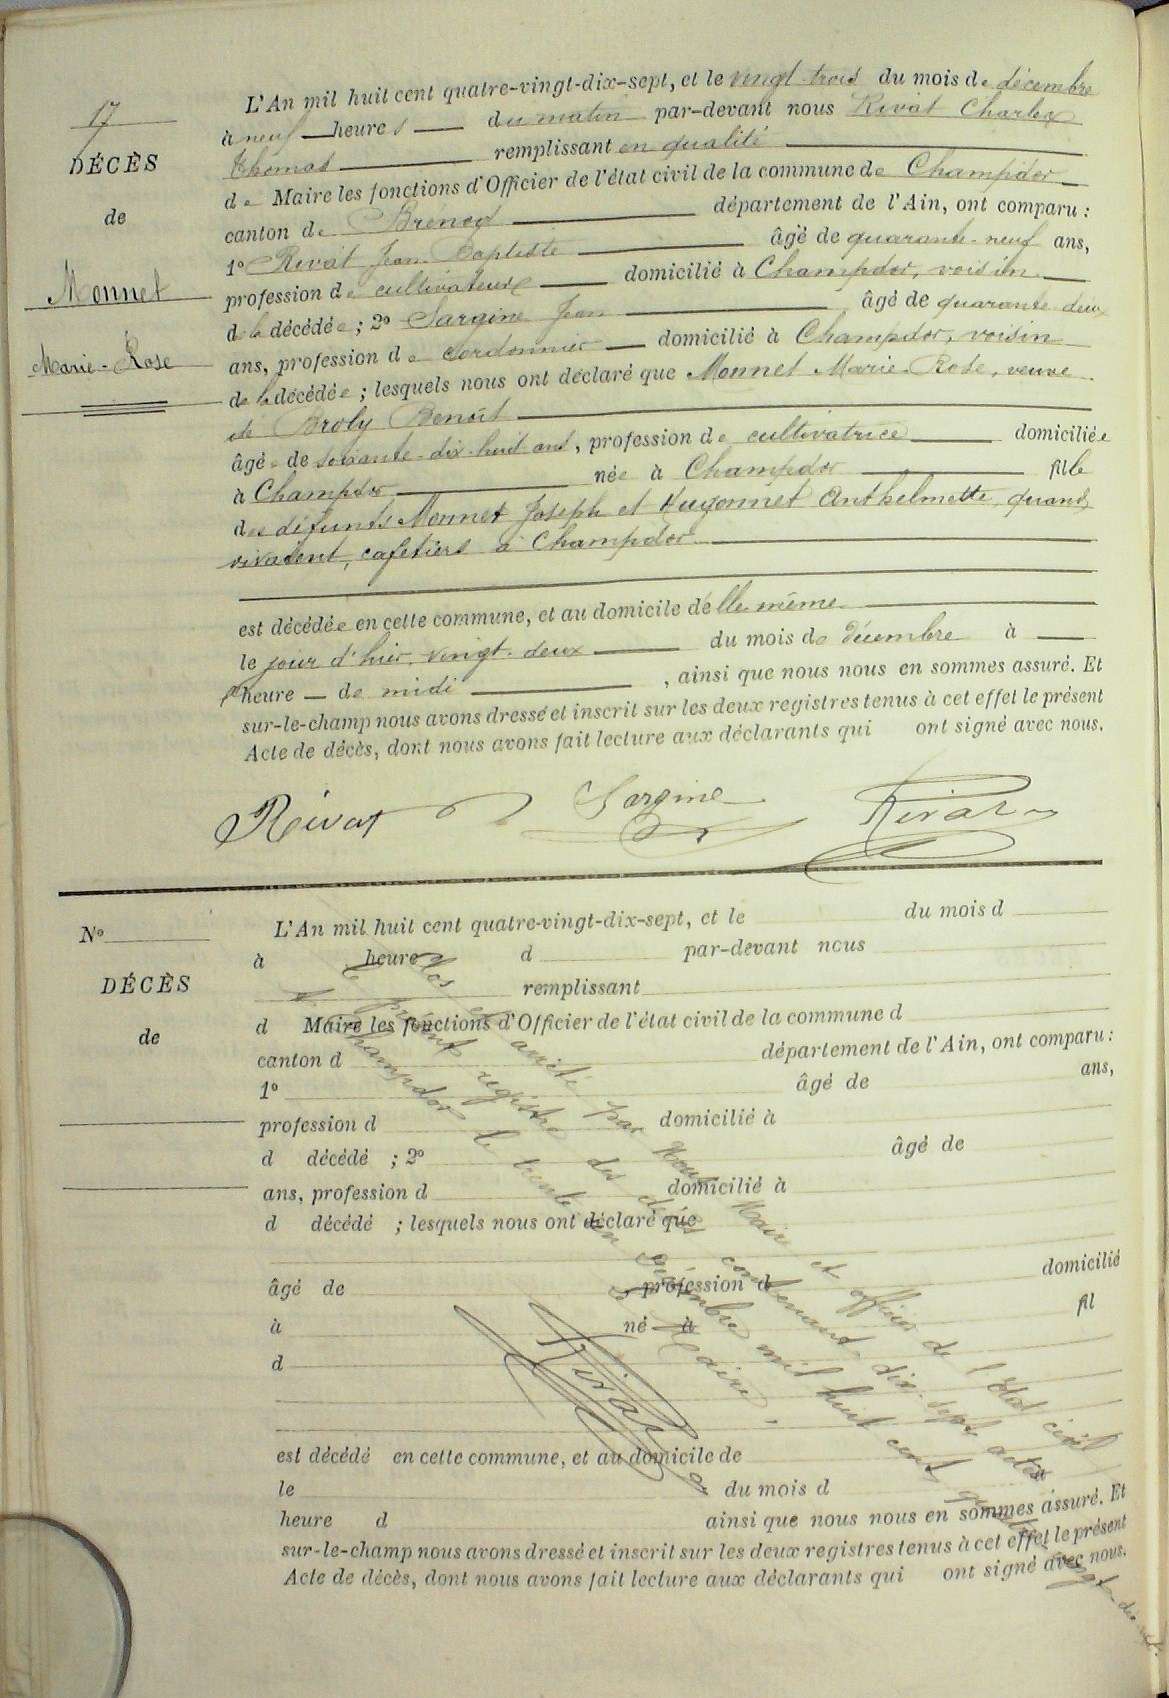 17
DÉCÈS
de
Monnet
Marie-Rose
L'An mil huit cent quatre-vingt-dix-sept, et le vingt-trois du mois de décembre
à neuf heures du matin par-devant nous Rivat Charles
Thomas remplissant en qualité
de Maire les fonctions d'Officier de l'état civil de la commune de Champdor
canton de Brénod département de l'Ain, ont comparu :
1º Rivat Jean-Baptiste âgé de quarante-neuf ans,
profession de cultivateur domicilié à Champdor, voisin
de la décédée ; 2º Sargine Jean âgé de quarante deux
ans, profession de cordonnier domicilié à Champdor, voisin
de la décédée ; lesquels nous ont déclaré que Monnet Marie-Rose, veuve
de Broly Benoît
âgée de soixante-dix-huit ans, profession de cultivatrice domiciliée
à Champdor née à Champdor fille
des défunts Monnet Joseph et Huyonnet Anthelmette, quand
vivaient, cafetiers à Champdor
est décédée en cette commune, et au domicile d'elle même
le jour d'hier, vingt-deux du mois de décembre à
heure de midi , ainsi que nous nous en sommes assuré. Et
sur-le-champ nous avons dressé et inscrit sur les deux registres tenus à cet effet le présent
Acte de décès, dont nous avons fait lecture aux déclarants qui ont signé avec nous.
Rivat Sargine Rivat
Nº
DÉCÈS
de
L'An mil huit cent quatre-vingt-dix-sept, et le du mois d
à heure d par-devant nous
remplissant
d Maire les fonctions d'Officier de l'état civil de la commune d
canton d département de l'Ain, ont comparu :
1º âgé de ans,
profession d domicilié à
d décédé ; 2º âgé de
ans, profession d domicilié à
d décédé ; lesquels nous ont déclaré que
âgé de profession d domicilié
à né à fil
d
est décédé en cette commune, et au domicile de
le du mois d
heure d ainsi que nous nous en sommes assuré. Et
sur-le-champ nous avons dressé et inscrit sur les deux registres tenus à cet effet le présent
Acte de décès, dont nous avons fait lecture aux déclarants qui ont signé avec nous.
Clos et arrêté par Nous Maire et officier de l'Etat civil
le présent registre des décès contenant dix-sept actes
à Champdor le trente un décembre mil huit cent quatre vingt-dix sept.
Le Maire,
Rivat